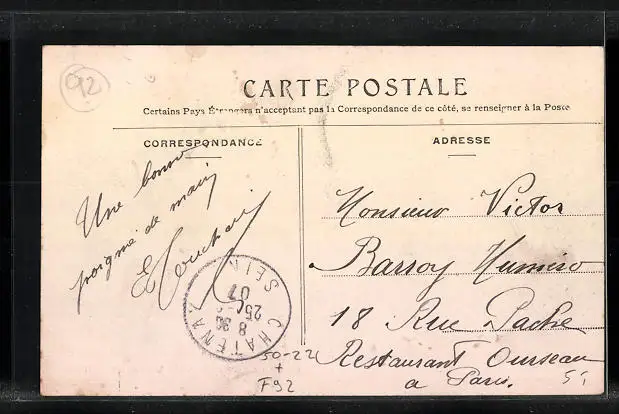 92
CARTE POSTALE
Certains Pays Étrangers n'acceptent pas la Correspondance de ce côté, se renseigner à la Poste
CORRESPONDANCE
ADRESSE
Une bonne
poignée de main
Monsieur Victor
Barroy Numéro
18 Rue Pache
Restaurant Ourseau
a Paris.
CHATENAY
SEINE
8 30
25
07
50-22
+
F92